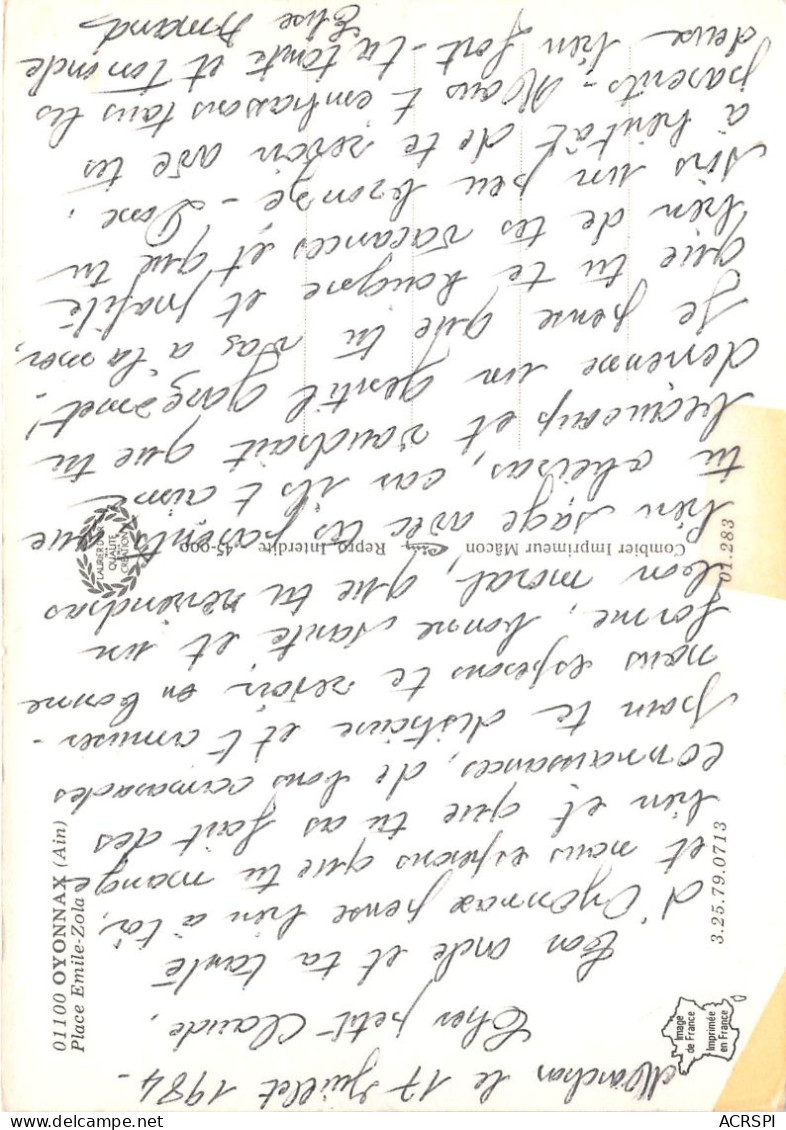 Manchon le 17 Juillet 1984 -
Cher petit Claude,
Ton oncle et ta tante
d'Oyonnax pense bien à toi,
et nous esperons que tu manges
bien et que tu as fait des
connaissances, de bons camarades
pour te distraire et t'amuser -
nous esperons te revoir en bonne
forme, bonne sante et un
bon moral, que tu reviendras
bien sage avec tes parents que
tu obeiras, car ils t'aime
beaucoup et voudrait que tu
devienne un gentil garçonnet!
Je pense que tu vas a la mer,
que tu te baigne et profite
bien de tes vacances et que tu
sois un peu bronze -
à bientôt de te revoir avec tes
parents - Nous t'embrassons tous les
deux bien fort - ta tante et ton oncle
Elise Armand
01100 OYONNAX (Ain)
Place Emile-Zola
LAURIER D'OR
QUALITÉ
CRÉATION
Combier Imprimeur Mâcon Repro. Interdite 45-099
01.283
3.25.79.0713
Image
de France
Imprimée
en France
ACRSPI